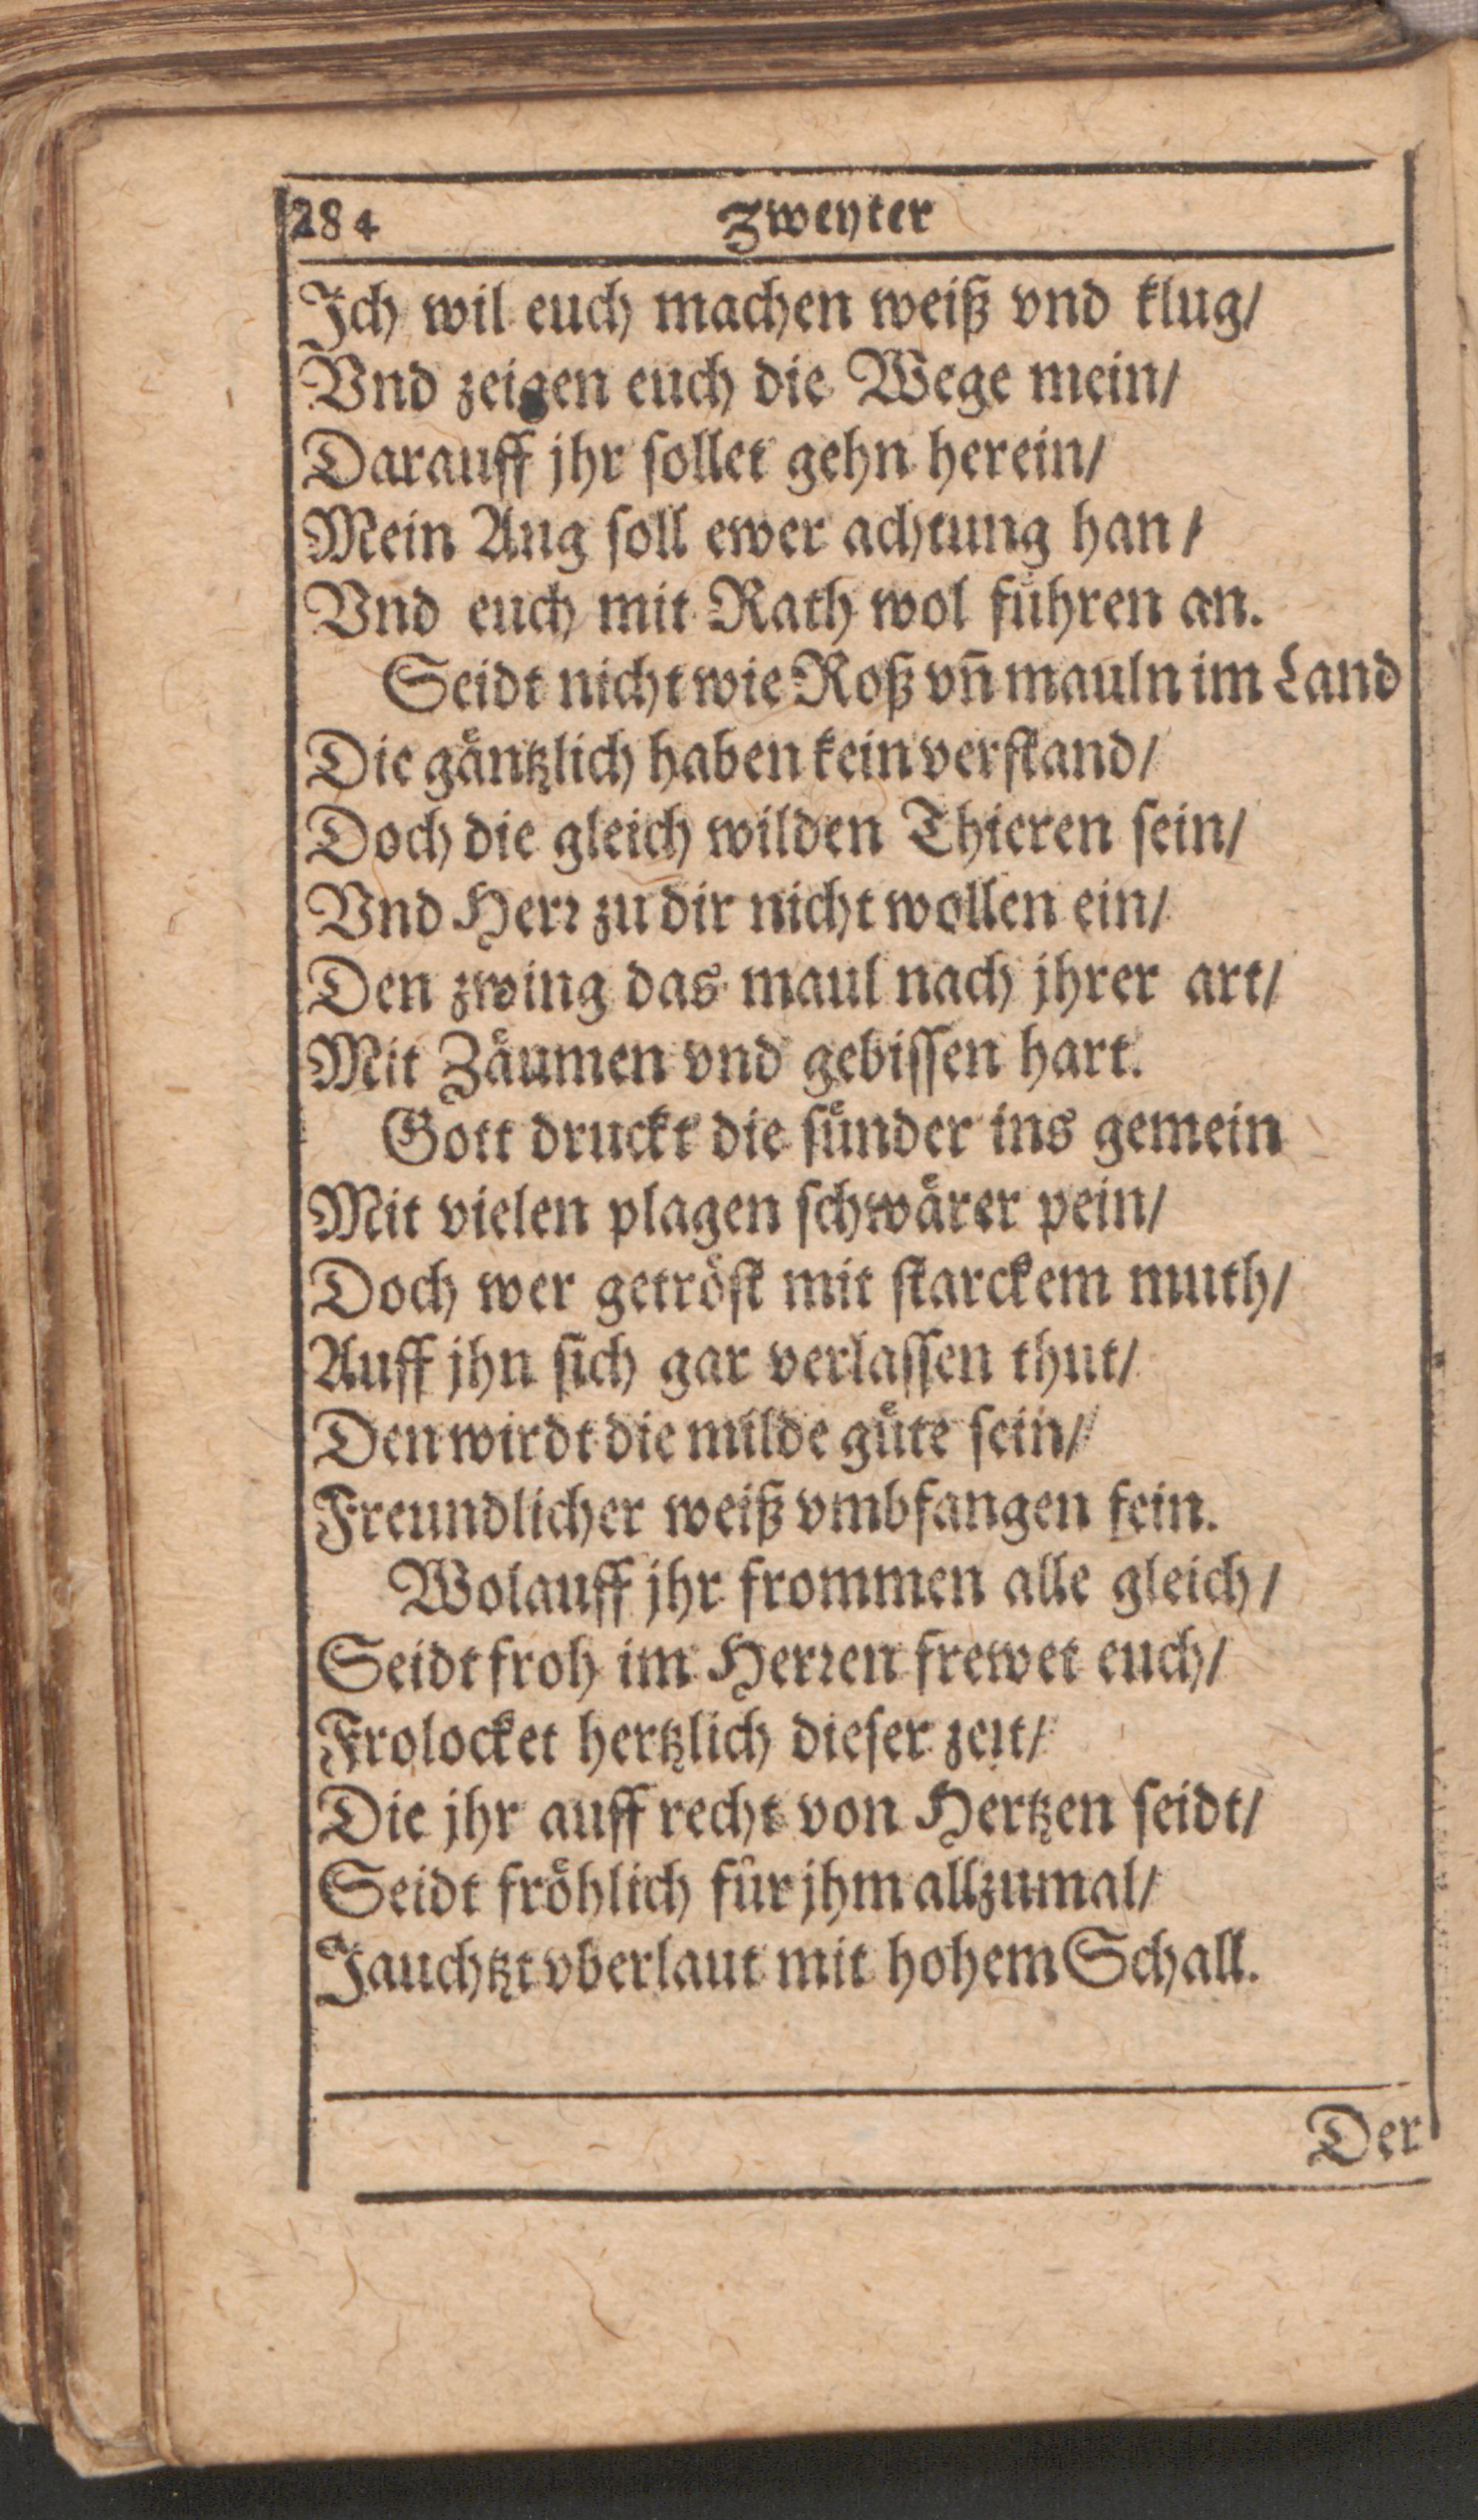 284 Zweyter
Ich wil euch machen weiß vnd klug/
Vnd zeigen euch die Wege mein/
Darauff jhr sollet gehn herein/
Mein Aug soll ewer achtung han/
Vnd euch mit Rath wol fuͤhren an.
Seidt nicht wie Roß vñ mauln im Land
Die gaͤntzlich haben kein verstand/
Doch die gleich wilden Thieren sein/
Vnd Herꝛ zu dir nicht wollen ein/
Den zwing das maul nach jhrer art/
Mit Zaͤumen vnd gebissen hart.
Gott druckt die suͤnder ins gemein
Mit vielen plagen schwaͤrer pein/
Doch wer getroͤst mit starckem muth/
Auff jhn sich gar verlassen thut/
Den wirdt die milde guͤte sein/
Freundlicher weiß vmbfangen fein.
Wolauff jhr frommen alle gleich/
Seidt froh im Herꝛen frewet euch/
Frolocket hertzlich dieser zeit/
Die jhr auff recht von Hertzen seidt/
Seidt froͤhlich fuͤr jhm allzumal/
Jauchtzt vberlaut mit hohem Schall.
Der